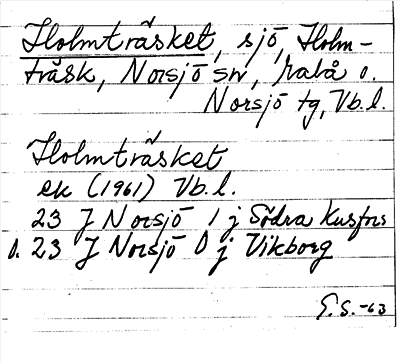 Holmträsket, sjö, Holm-
träsk, Norsjö sn, Malå o.
Norsjö tg, Vb.l.
Holmträsket
ek (1961) Vb.l.
23 J Norsjö 1 j Södra Kusfors
o. 23 J Norsjö 0 j Vikborg
E.S.-63